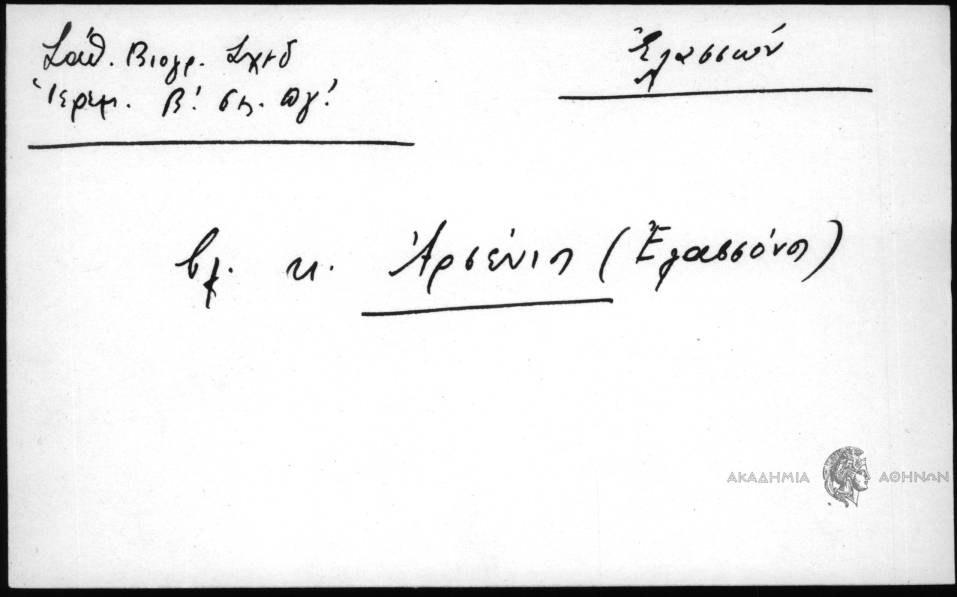 Σάθ. Βιογρ. Σχεδ
Ἱερεμ. Β! σελ. πγ!
Ἐλασσών
βλ. κ. Ἀρσένιος (Ἐλασσόνος)
ΑΚΑΔΗΜΙΑ ΑΘΗΝΩΝ